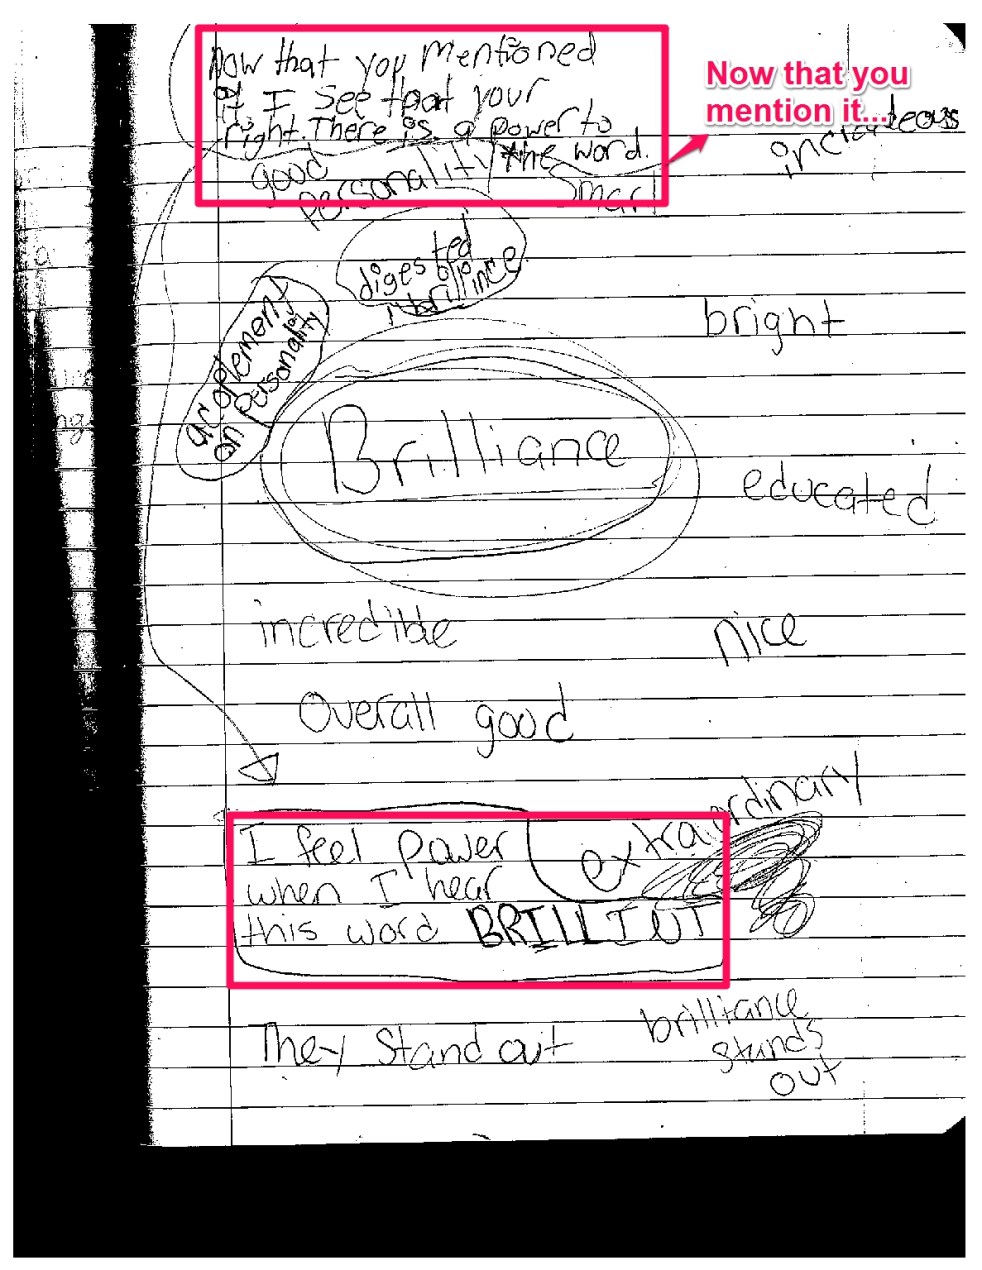 Now that you Mentioned
it I see that your
right. There is a power to
the word.
Now that you
mention it...
good
personality
smart
digested
brillince
on personality
bright
Brilliance
educated
incredible
nice
Overall good
extraordinary
I feel power
when I hear
this word BRILLIUT
They Stand out
brilliance
stunds
out